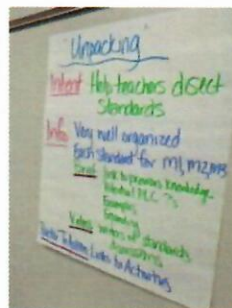 "Unpacking"
Intent Help teachers disect
Standards
Info Very well organized
Each standard for M1, M2, M3
link to previous knowledge
Potential PLC ?s
Examples
Video writers of standards
discussions
Links to Activities